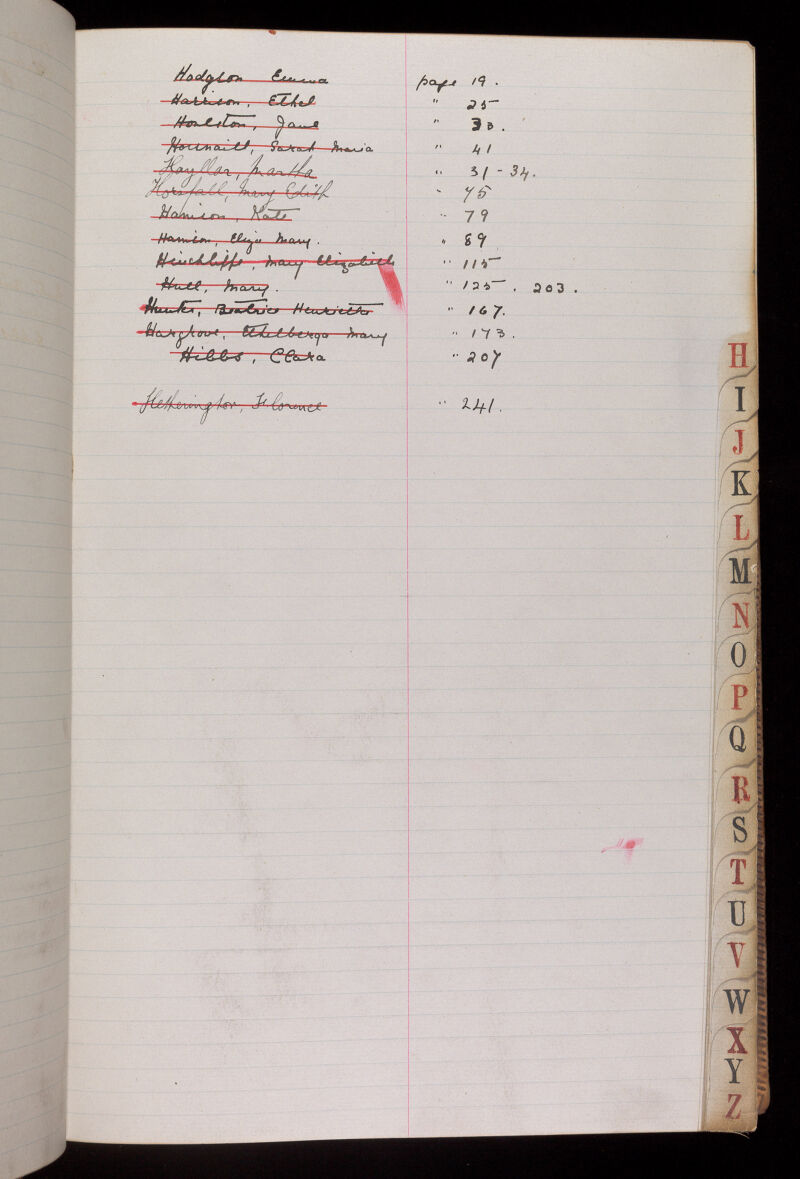 Hodgson Emma page 19.
Harrison, Ethel " 25
Houlston, Jane " 33.
Hournaill, Sarah Maria " 41
Hayllar, Martha " 31-34.
Horsfall, Mary Edith " 45
Harrison, Kate " 79
Harrison, Eliza Mary. " 89
Hinchliffe, Mary Elizabeth " 115
Hull, Mary. " 125. 203.
Hunter, Beatrice Henrietta " 167.
Hargrove, Ethelberga Mary " 173.
Hibbs, Clara " 207
Hetherington, Florence " 241.
H
I
J
K
L
M
N
O
P
Q
R
S
T
U
V
W
X
Y
Z